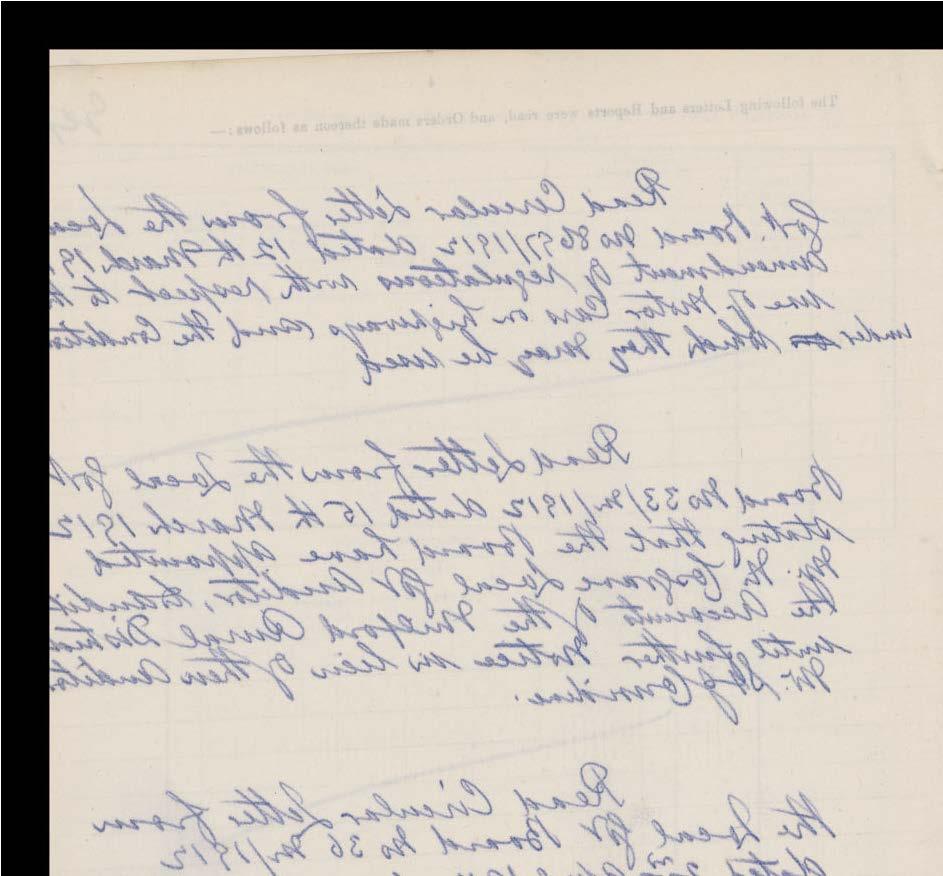 The following Letters and Reports were read, and Orders made thereon as follows:—
Read Circular Letter from the Loca
Govt. Board No 8657/1912 dated 12th March 19
Amendment of regulations with respect to th
use of Motor Cars on highways and the Condition
under which they may be used
Read Letter from the Local Govt
Board No 33/M/1912 dated 15th March 1912
Stating that the Board have appointed
Mr. Cosgrave Local Gov Auditor, to audit
the accounts of the Milford Rural District
until further notice in lieu of their Auditor
Mr. Considine.
Read Circular Letter from
the Local Gov Board No 36 M/1912
dated